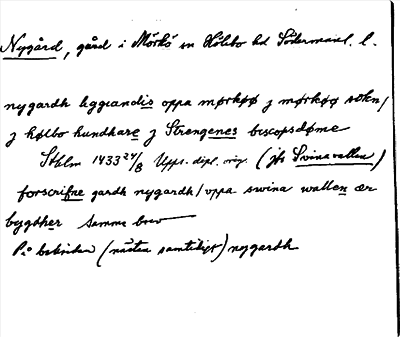 Nygård, gård i Mörkö sn Hölebo hd Södermanl. l.
nygardh liggiandis oppa mørkøø j mørkøø sokn/
j hølbo hundhare j Strengenes biscopsdøme
Sthlm 1433 24/8 Upps. dipl. orig. (jfr Svinavallen)
forscrifne gardh nygardh / uppa swina wallen ær
bygdher samma brev
På baksidan (nästan samtidigt) nygardh